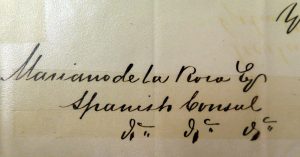 Mariano de la Roca Esq
Spanish Consul
&c. &c. &c.